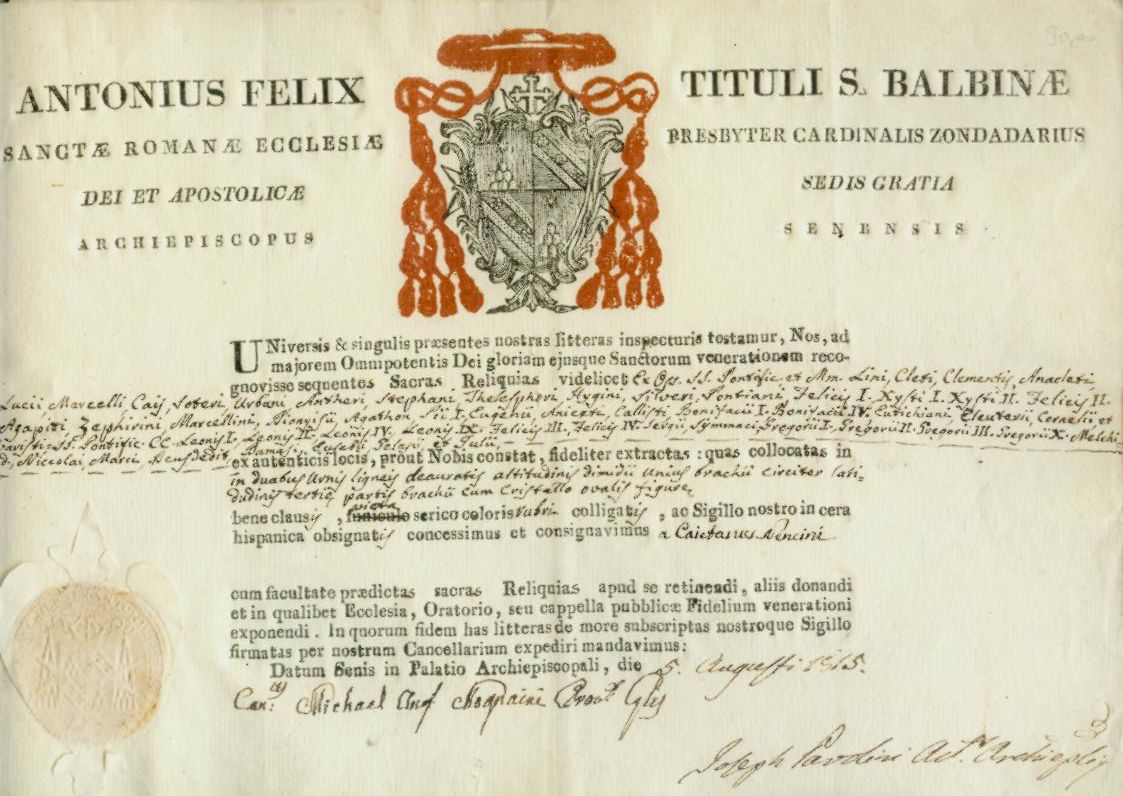 ANTONIUS FELIX
TITULI S. BALBINÆ
SANCTÆ ROMANÆ ECCLESIÆ
PRESBYTER CARDINALIS ZONDADARIUS
DEI ET APOSTOLICÆ
SEDIS GRATIA
ARCHIEPISCOPUS
SENENSIS
UNiversis & singulis præsentes nostras litteras inspecturis testamur, Nos, ad
majorem Omnipotentis Dei gloriam ejusque Sanctorum venerationem reco-
gnovisse sequentes Sacras Reliquias videlicet Ex Oss. SS. Pontific. et Mm. Lini, Cleti, Clementis, Anacleti
Lucii Marcelli, Caij, Soteri, Urbani, Antheri Stephani Thelesphori Hygini, Silveri, Pontiani, Felicis I. Xysti I. Xysti II. Felicis II.
Agapiti Zephirini, Marcellini, Dionysii, Agathon. Pii I. Eugenii, Aniceti, Callisti Bonifacii I. Bonifacii IV. Eutichiani Eleuterii, Cornelii et
varisti. SS. Pontific. CC. Leonis I. Leonis II. Leonis IV. Leonis IX. Felicis III. Felicis IV. Symmaci, Gregorii I. Gregorii II. Gregorii III. Gregorii X. Melchi
d, Niccolai, Marci Deusdedit, Damasi, Eusebii Gelasii et Julii
ex autenticis locis, prout Nobis constat, fideliter extractas: quas collocatas in
in duabus Urnis ligneis deauratis altitudinis dimidii Unius brachii circiter lati-
dudinis tertiæ partis brachii cum Cristallo ovalis figure
bene clausis, funiculo victa serico coloris rubri colligatis, ac Sigillo nostro in cera
hispanica obsignatis concessimus et consignavimus a Caietanus Nencini
cum facultate prædictas sacras Reliquias apud se retinendi, aliis donandi
et in qualibet Ecclesia, Oratorio, seu cappella pubblicæ Fidelium venerationi
exponendi. In quorum fidem has litteras de more subscriptas nostroque Sigillo
firmatas per nostrum Cancellarium expediri mandavimus:
Datum Senis in Palatio Archiepiscopali, die 5. Augusti 1815.
Can: Michael Ang
Joseph Archieplis